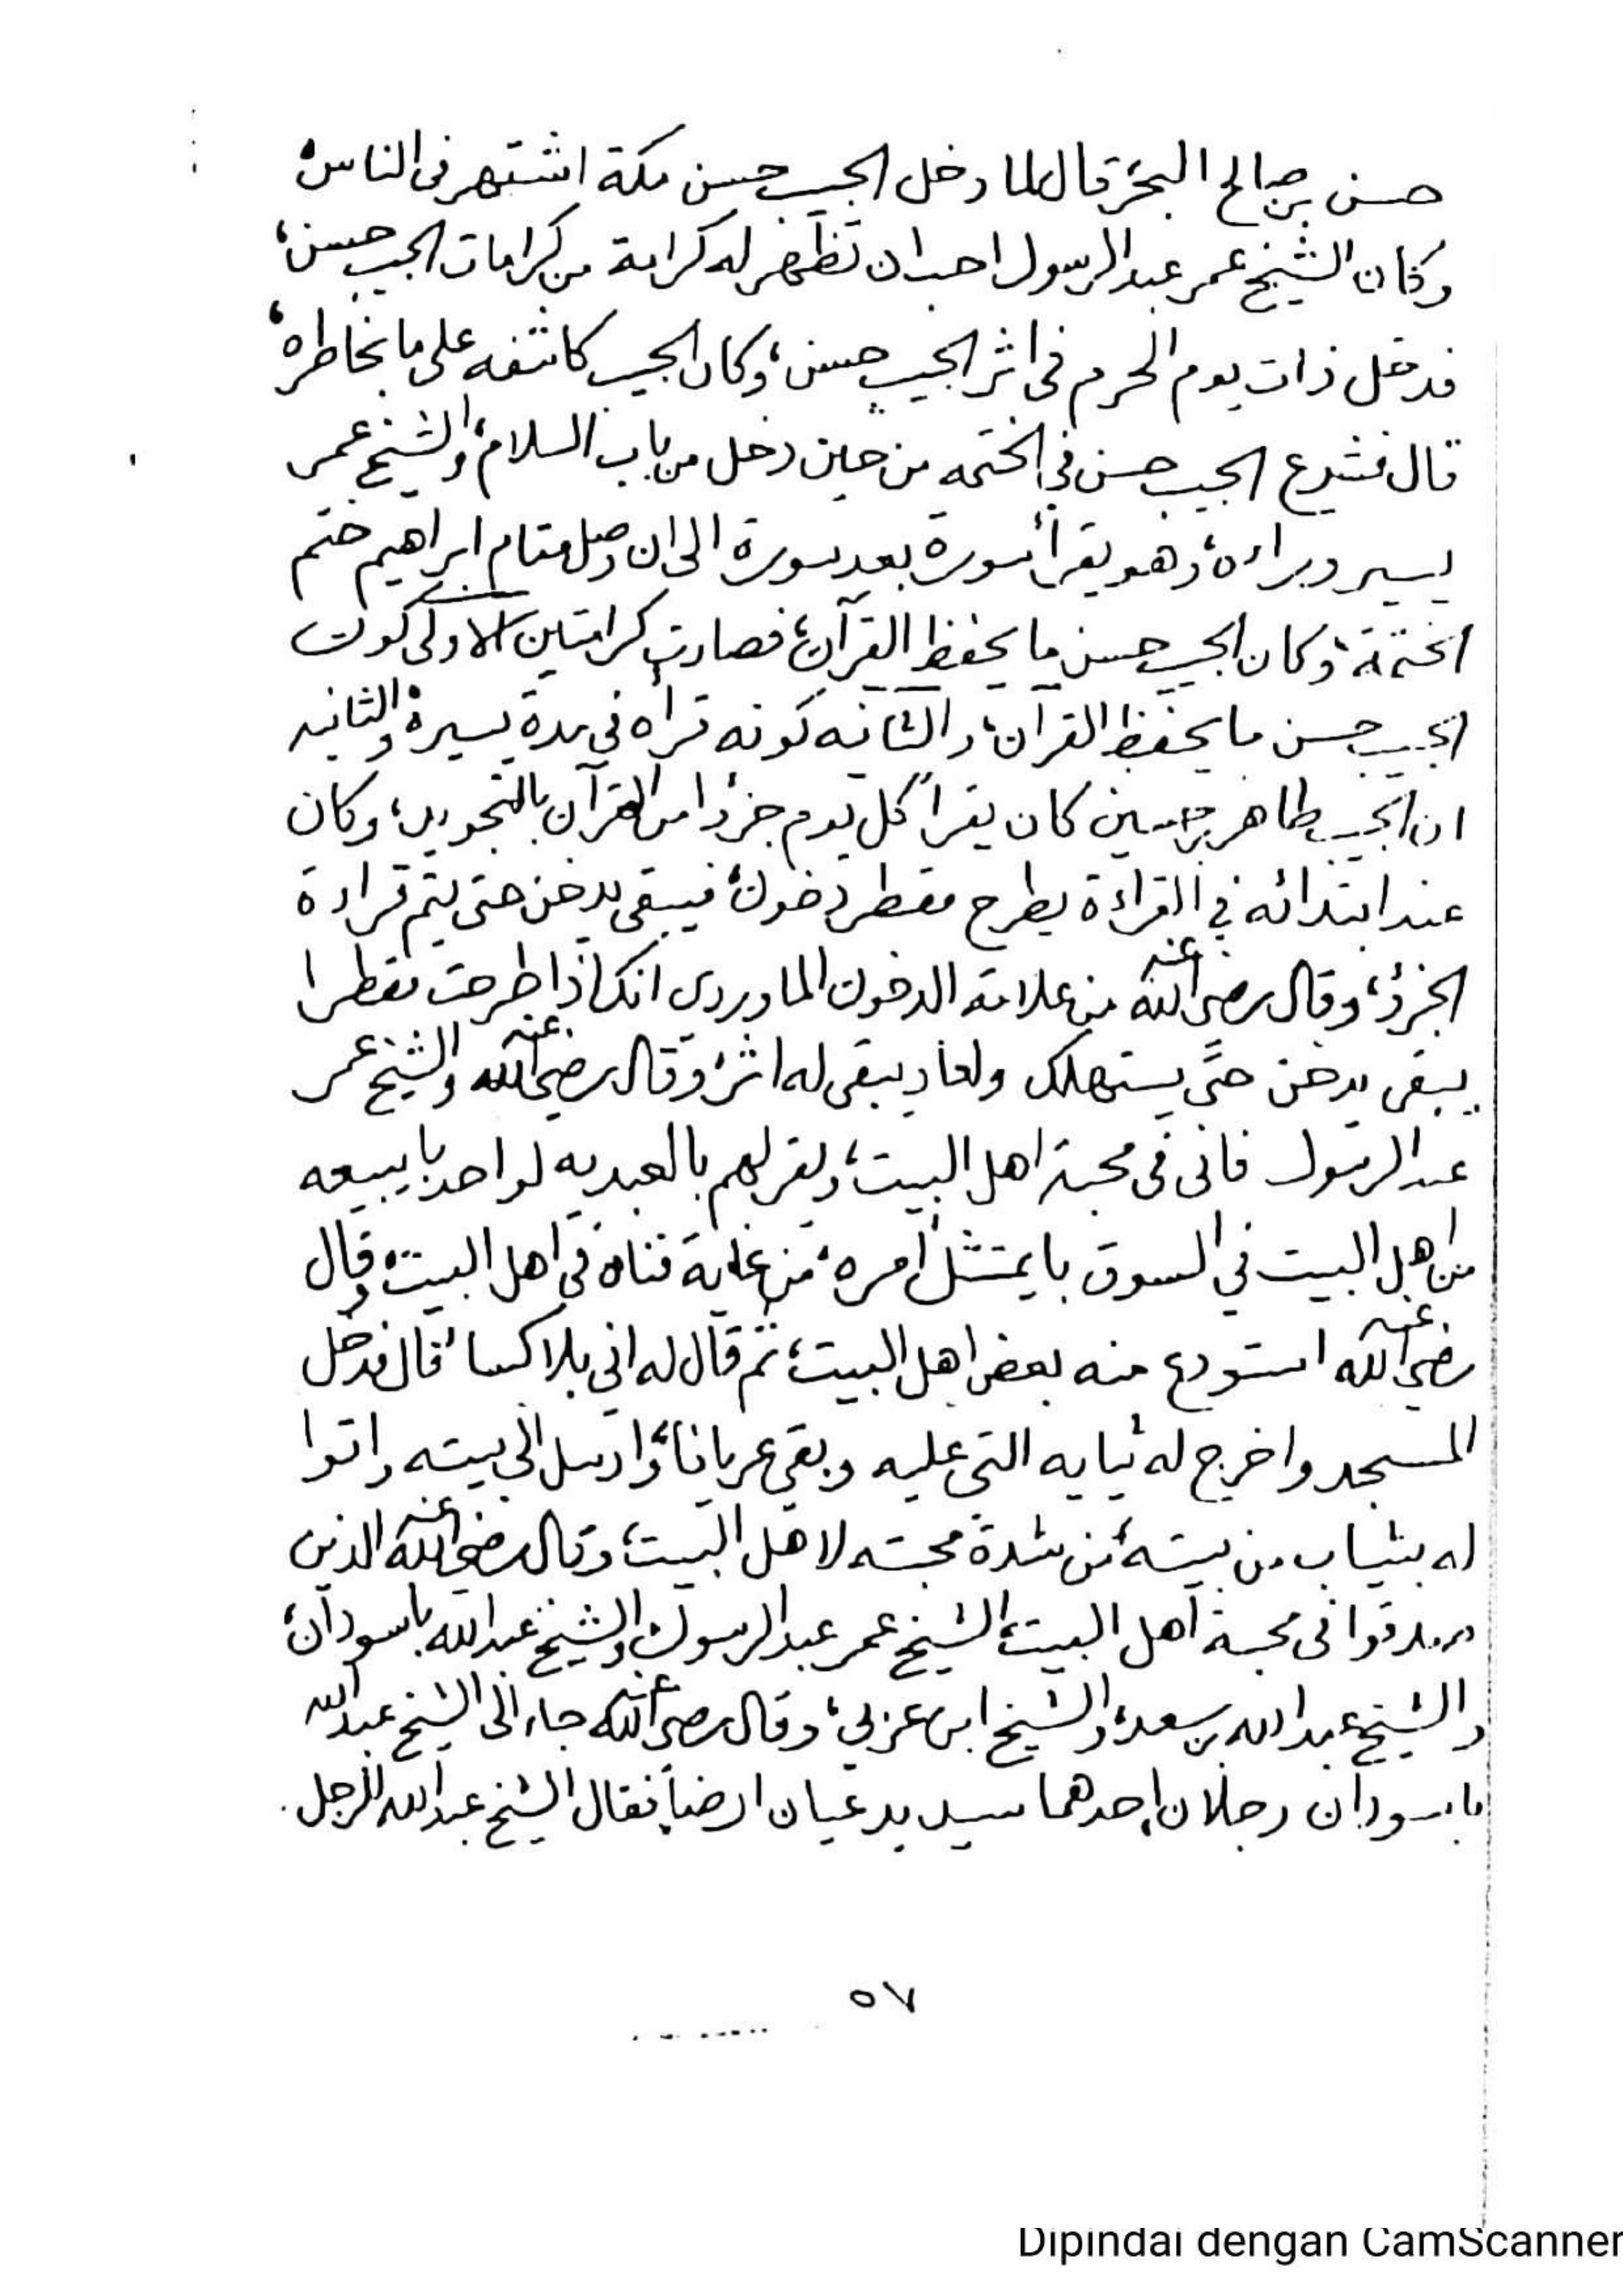 حسن بن صالح البحر، قال لما دخل الحبيب حسن مكة اشتهر في الناس،
وكان الشيخ عمر عبد الرسول احب ان تظهر له كرامة من كرامات الحبيب حسن،
فدخل ذات يوم الحرم في اثر الحبيب حسن، وكان الحبيب كاشفه على ما بخاطره،
قال فشرع الحبيب حسن في الختمه من حين دخل من باب السلام، والشيخ عمر
يسير وراءه، وهو يقرأ سورة بعد سورة الى ان وصل مقام ابراهيم ختم
الختمة، وكان الحبيب حسن ما يحفظ القرآن، فصارت كرامتين الاولى كون
الحبيب حسن ما يحفظ القرآن، والثانيه كونه قرأه في مدة يسيرة، والثانيه
ان الحبيب طاهر بن حسين كان يقرأ كل يوم جزءا من القرآن بالتجويد، وكان
عند ابتدائه في القراءة يطرح مقطر دخون، فيبقى يدخن حتى يتم قراءة
الجزء، وقال رضي الله عنه من علامة الدخون الماوردي انك اذا طرحت مقطرا
يبقى يدخن حتَّى يستهلك ولعاد يبقى له اثر، وقال رضي الله عنه والشيخ عمر
عبد الرسول فاني في محبة اهل البيت، ويقر لهم بالعبديه لو احد با يبيعه
من اهل البيت في السوق با يمتثل أمره، من غاية فناه في اهل البيت، وقال
رضي الله عنه استودع منه بعض اهل البيت، ثم قال له اني بلا كساء، قال فدخل
المسجد واخرج له ثيابه التي عليه وبقي عريانا، وارسل الى بيته واتوا
له بثياب من بيته، من شدة محبته لاهل البيت، وقال رضي الله عنه الذين
صدقوا في محبة أهل البيت، الشيخ عمر عبد الرسول، والشيخ عبد الله باسودان،
والشيخ عبد الله بن سعد، والشيخ ابن عربي، وقال رضي الله عنه جاء الى الشيخ عبد الله
باسودان رجلان احدهما سيد يدعيان ارضاً، فقال الشيخ عبد الله للرجل.
٥٧
Dipindai dengan CamScanner